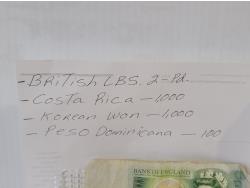 - BRITISH LBS. 2-Pd.
- COSTA RICA - 1,000
- KOREAN WON - 1,000
- PESO DOMINICANA - 100
BANK OF ENGLAND